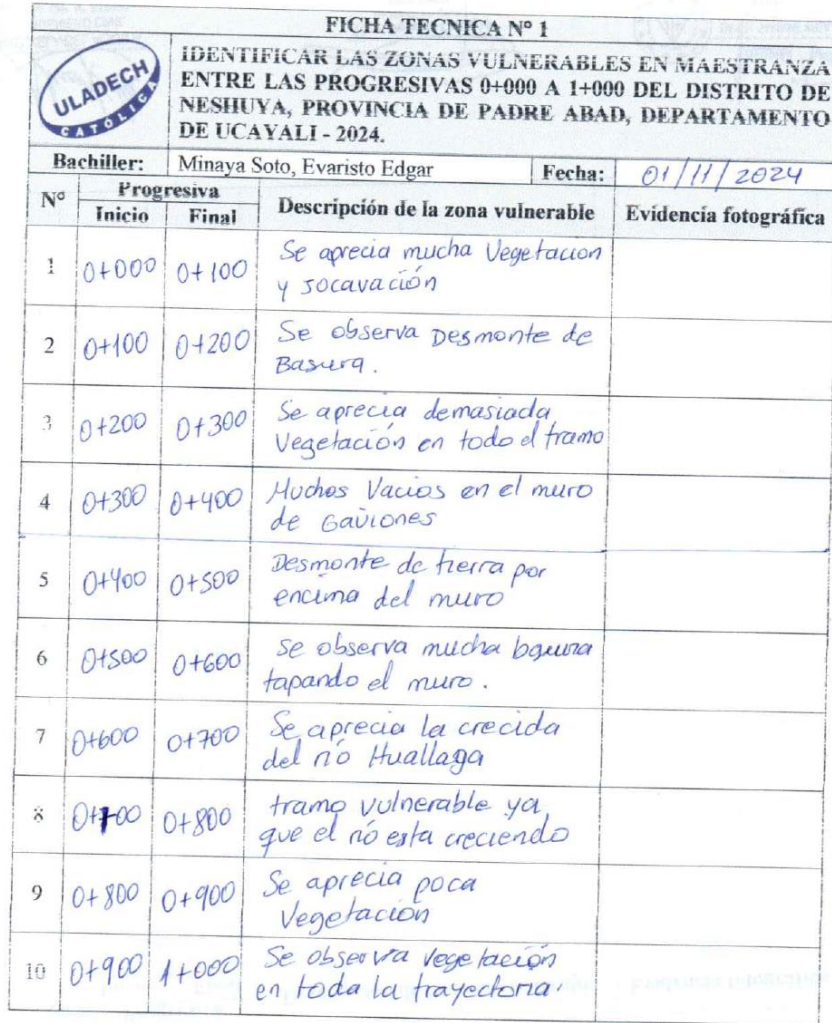 FICHA TECNICA Nº 1
ULADECH
CATÓLICA
IDENTIFICAR LAS ZONAS VULNERABLES EN MAESTRANZA
ENTRE LAS PROGRESIVAS 0+000 A 1+000 DEL DISTRITO DE
NESHUYA, PROVINCIA DE PADRE ABAD, DEPARTAMENTO
DE UCAYALI - 2024.
Bachiller: Minaya Soto, Evaristo Edgar Fecha: 01/11/2024
Nº Progresiva Descripción de la zona vulnerable Evidencia fotográfica
Inicio Final
1 0+000 0+100 Se aprecia mucha Vegetacion
y socavación
2 0+100 0+200 Se observa Desmonte de
Basura.
3 0+200 0+300 Se aprecia demasiada
Vegetación en todo el tramo
4 0+300 0+400 Muchos Vacios en el muro
de Gaviones
5 0+400 0+500 Desmonte de tierra por
encima del muro
6 0+500 0+600 Se observa mucha basura
tapando el muro.
7 0+600 0+700 Se aprecia la crecida
del río Huallaga
8 0+700 0+800 tramo vulnerable ya
que el río esta creciendo
9 0+800 0+900 Se aprecia poca
Vegetación
10 0+900 1+000 Se observa vegetación
en toda la trayectoria.